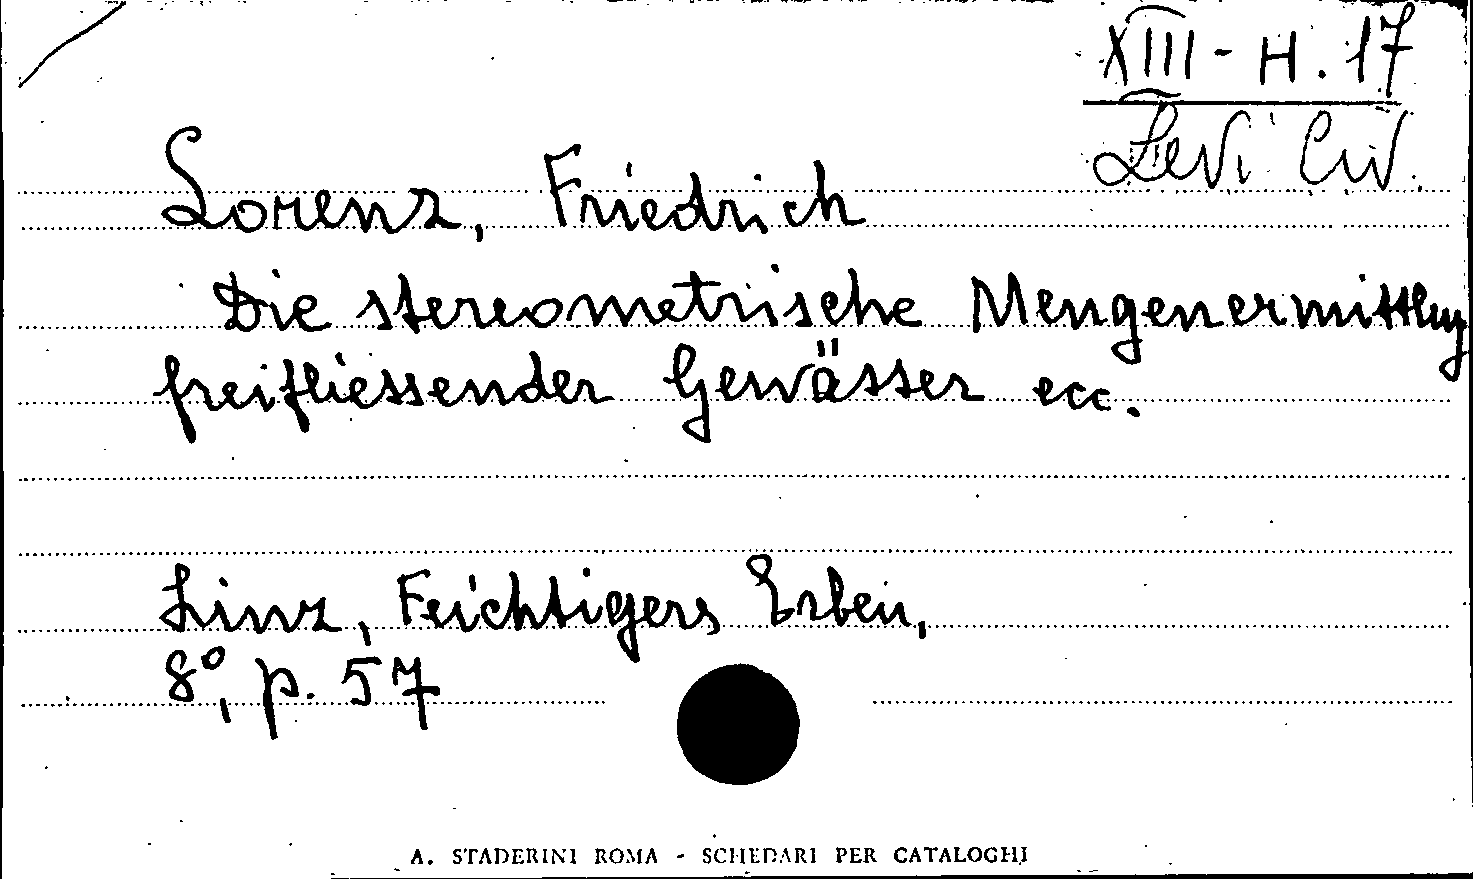 XIII - H. 17
Levi Civ.
Lorenz, Friedrich
Die stereometrische Mengenermittlung
freifliessender Gewässer ecc.
Linz, Feichtigers Erben,
8°, p. 57
A. STADERINI ROMA - SCHEDARI PER CATALOGHI